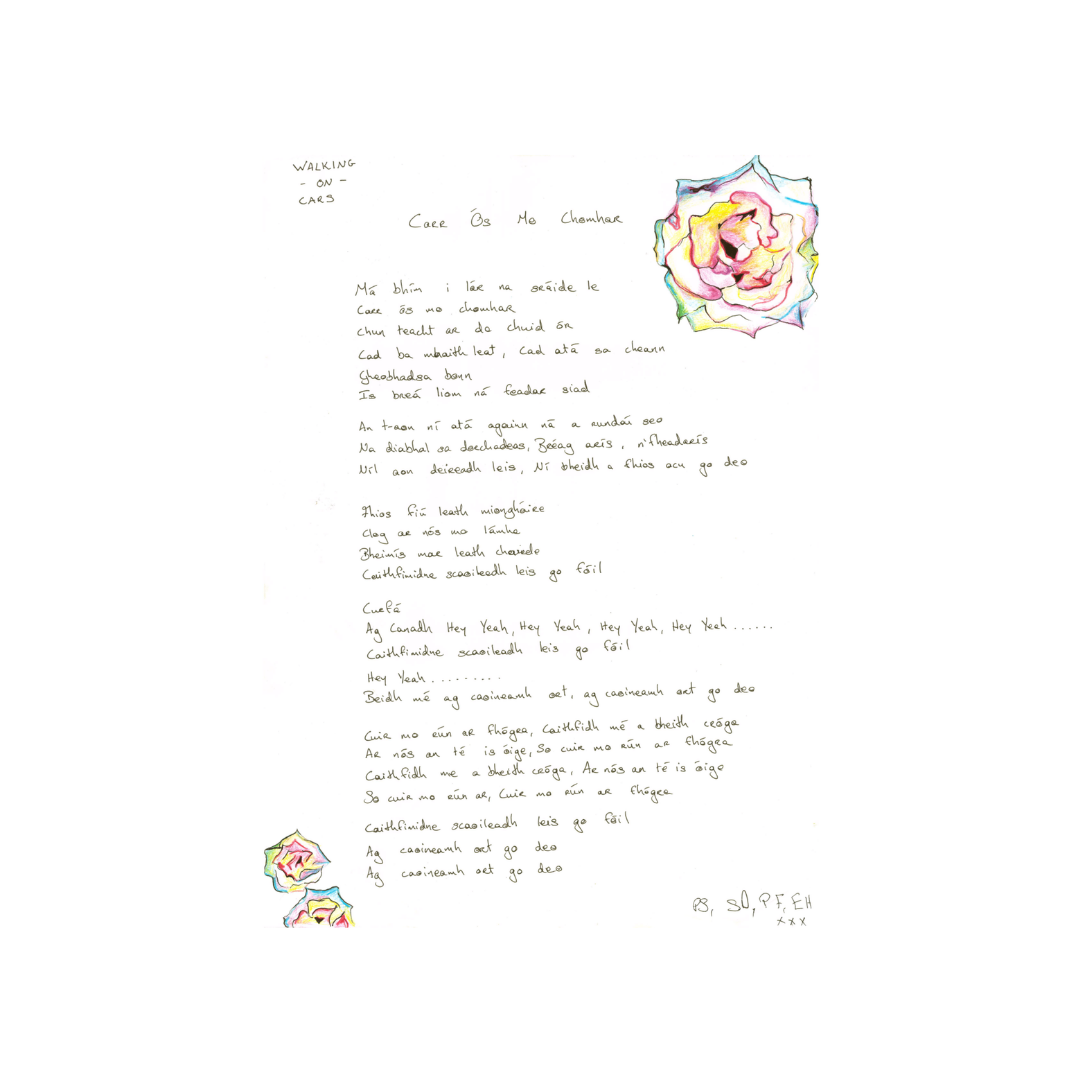 WALKING
- ON -
CARS
Carr Ós Mo Chomhar
Má bhím i lár na sráide le
Carr ós mo chomhar
Chun teacht ar do chuid ón
Cad ba mhaith leat, Cad atá sa cheann
Gheobhadsa bonn
Is breá liom ná feadar siad
An t-aon ní atá againn ná a rundaí seo
Na diabhal sa dorchadas, Bréag arís, n'fheadarís
Níl aon deireadh leis, Ní bheidh a fhios acu go deo
Fhios fiú leath miongháire
Clog ar nós mo lámha
Bheimís mar leath
Caithfimidne scaoileadh leis go fóil
Curfá
Ag Canadh Hey Yeah, Hey Yeah, Hey Yeah, Hey Yeah ......
Caithfimidne scaoileadh leis go fóil
Hey Yeah .........
Beidh mé ag caoineamh ort, ag caoineamh ort go deo
Cuir mo rún ar fhógra, Caithfidh mé a bheith cróga
Ar nós an té is óige, So cuir mo rún ar fhógra
Caithfidh me a bheith cróga, Ar nós an té is óige
So cuir mo rún ar, Cuir mo rún ar fhógra
Caithfimidne scaoileadh leis go fóil
Ag caoineamh ort go deo
Ag caoineamh ort go deo
PS, SD, PF, EH
xxx